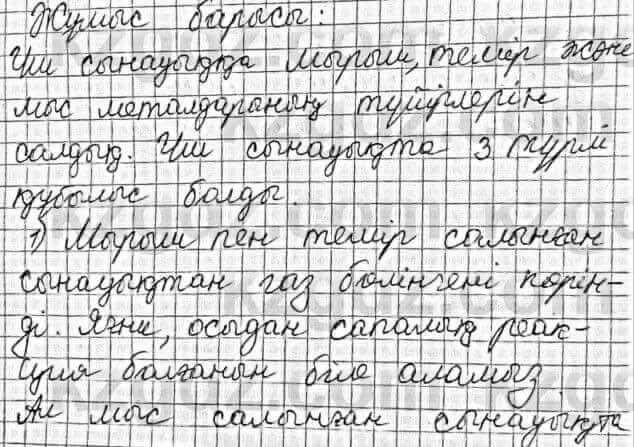 Жұмыс барысы:
Үш сынауыққа мырыш, темір және
мыс металдарының түйірлерін
салдық. Үш сынауықта 3 түрлі
құбылыс болды.
1) Мырыш пен темір салынған
сынауықтан газ бөлінгені көрін-
ді. Яғни, осыдан сапалық реак-
ция болғанын біле аламыз
Ал мыс салынған сынауықта